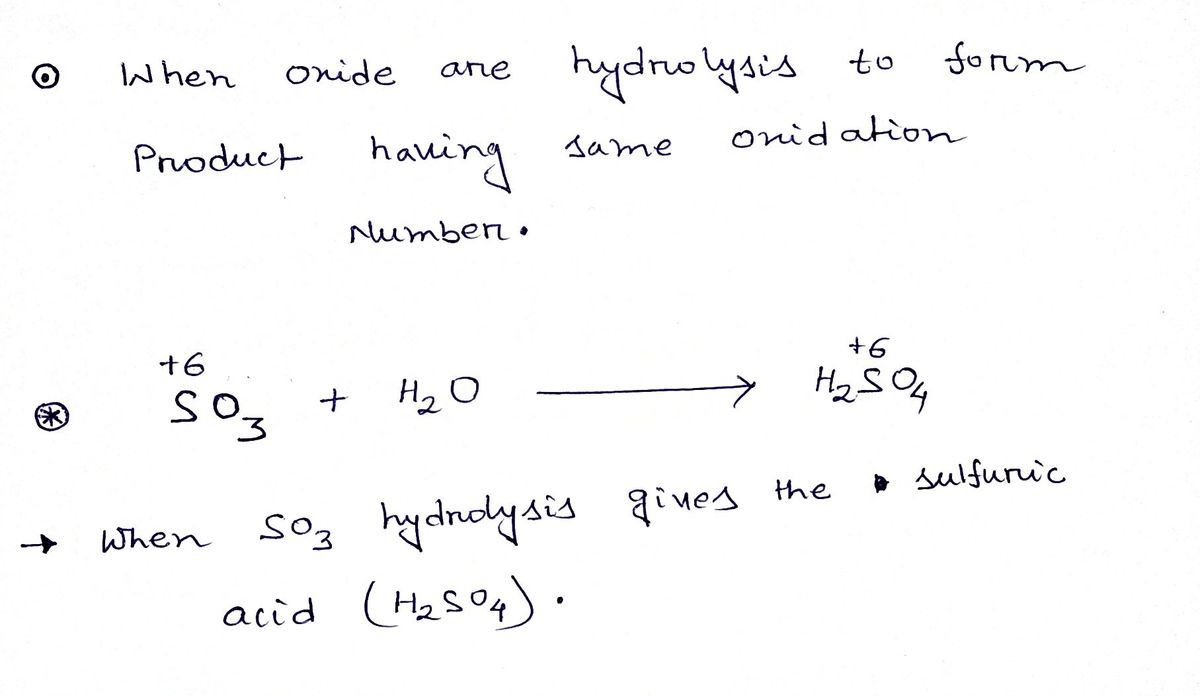 ⊙ When oxide are hydrolysis to form
Product having same oxidation
Number.
+6 +6
⊛ SO₃ + H₂O ⟶ H₂SO₄
→ When SO₃ hydrolysis gives the sulfuric
acid (H₂SO₄).